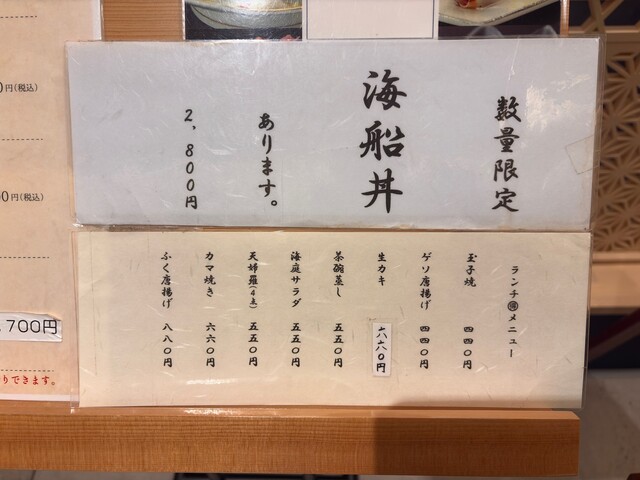 数量限定
海船丼
あります。
2,800円
ランチ㊝メニュー
玉子焼 四四〇円
ゲソ唐揚げ 四四〇円
生カキ 六六〇円
茶碗蒸し 五五〇円
海庭サラダ 五五〇円
天婦羅(4点) 五五〇円
カマ焼き 六六〇円
ふく唐揚げ 八八〇円
0円(税込)
00円(税込)
,700円
りできます。